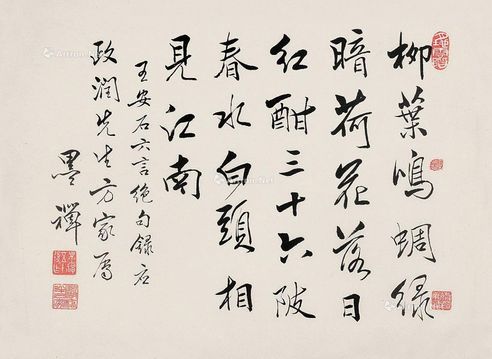 柳葉鳴蜩綠
暗荷花落日
紅酣三十六陂
春水白頭相
見江南
王安石六言絕句錄应
政潤先生方家屬
墨禪